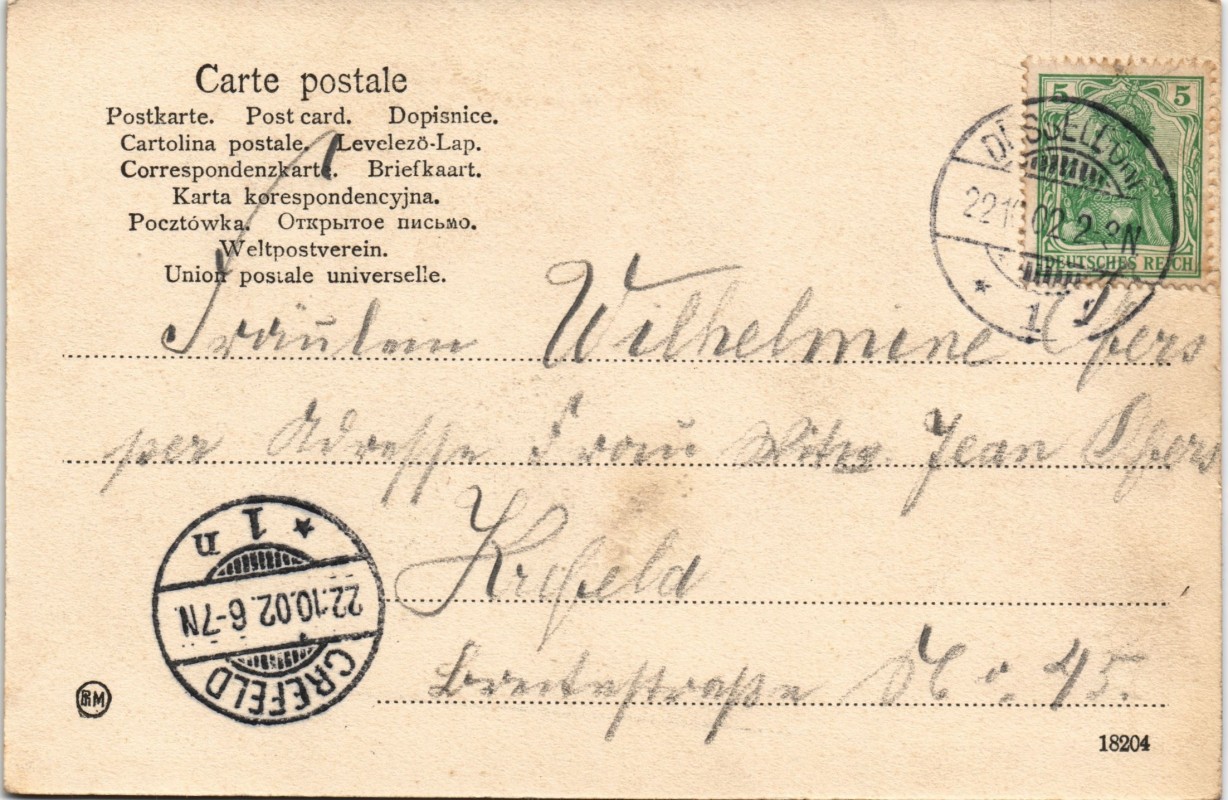 Carte postale
Postkarte. Post card. Dopisnice.
Cartolina postale. Levelezö-Lap.
Correspondenzkarte. Briefkaart.
Karta korespondencyjna.
Pocztówka. Открытое письмо.
Weltpostverein.
Union postale universelle.
5 5
DEUTSCHES REICH
DÜSSELDORF
22.10.02.2-3N
* 1
Fräulein Wilhelmine
per Adresse Frau Witwe Jean
Krefeld
Breitestraße No. 45.
* 1 n
22.10.02.6-7N.
CREFELD
18204